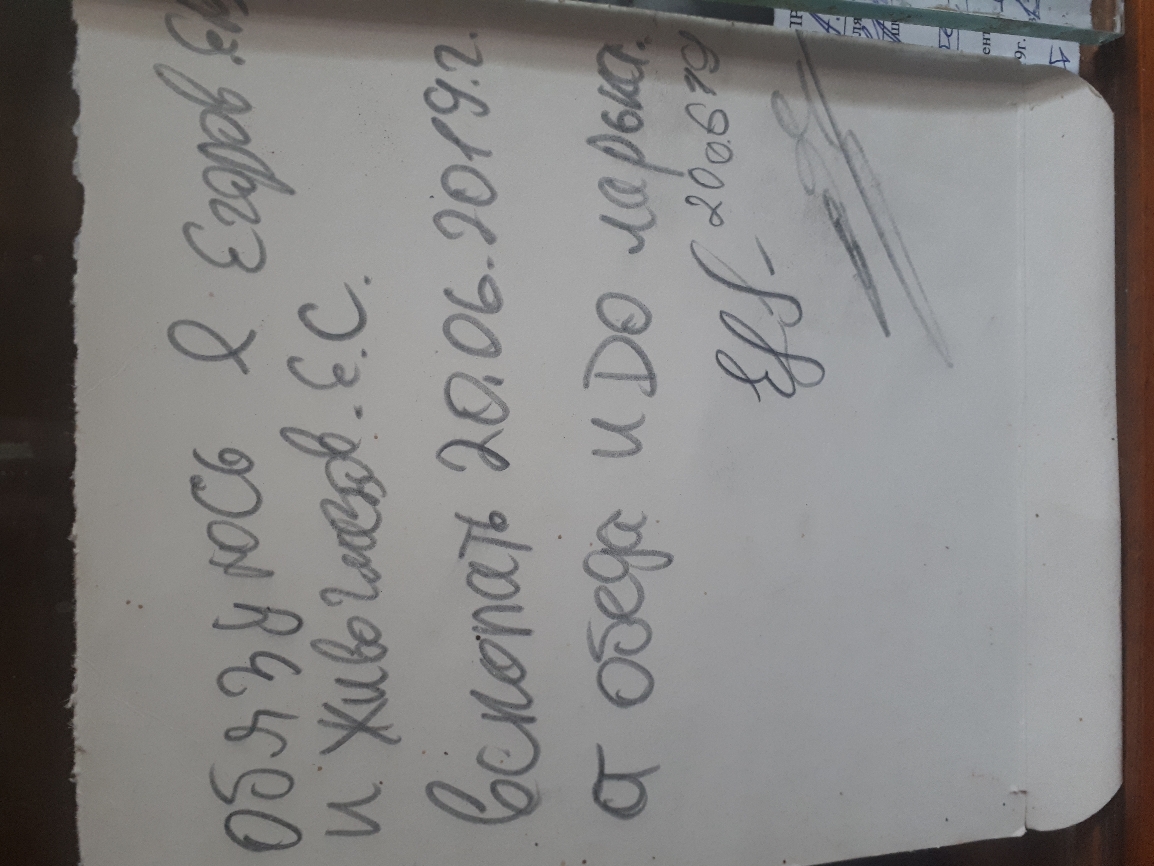 Обязуюсь я Егоров.
и Живоглазов.Е.С.
Вскопать 20.06.2019.г.
от обеда и До ларька.
20.06 19